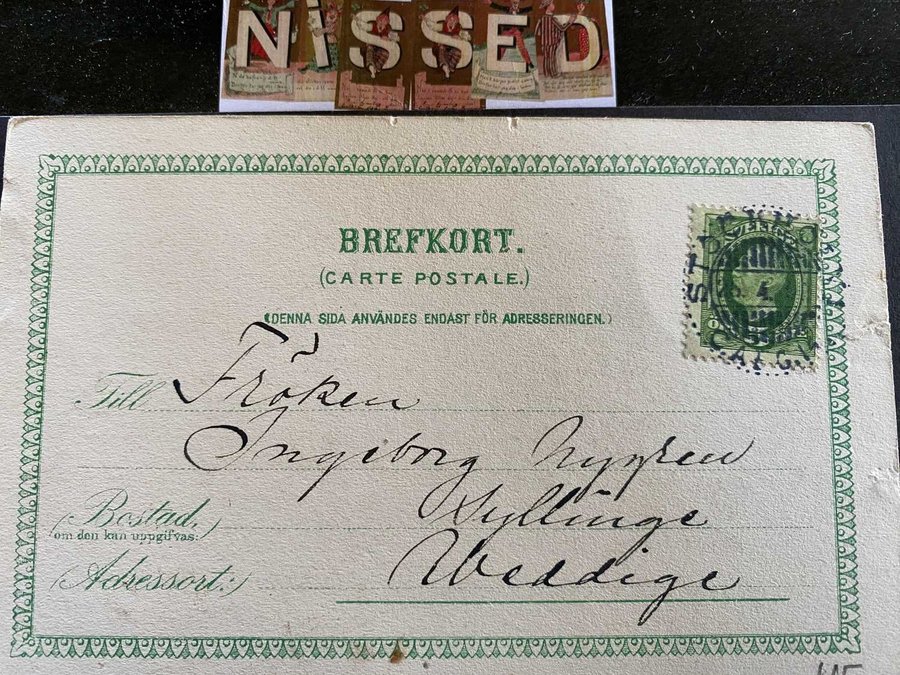 NiSSED
BREFKORT.
(CARTE POSTALE.)
(DENNA SIDA ANVÄNDES ENDAST FÖR ADRESSERINGEN.)
Till Fröken
Ingeborg
Bostad, Kyllinge
(om den kan uppgifvas:)
Adressort:) Weddige